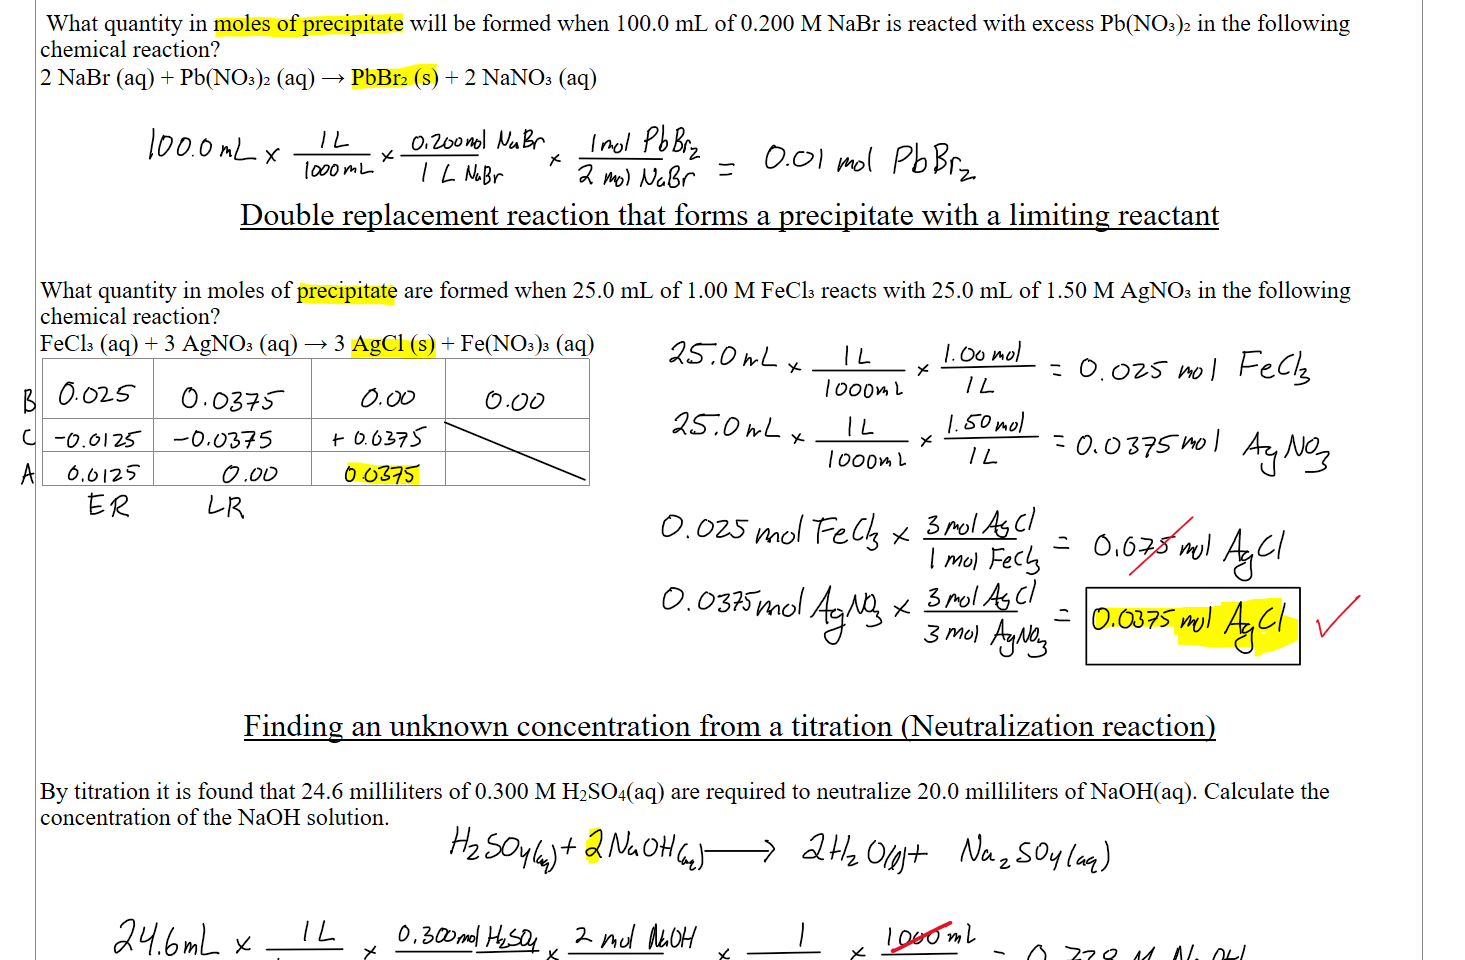 What quantity in moles of precipitate will be formed when 100.0 mL of 0.200 M NaBr is reacted with excess Pb(NO₃)₂ in the following
chemical reaction?
2 NaBr (aq) + Pb(NO₃)₂ (aq) → PbBr₂ (s) + 2 NaNO₃ (aq)
100.0 mL × 1 L / 1000 mL × 0.200 mol NaBr / 1 L NaBr × 1 mol PbBr₂ / 2 mol NaBr = 0.01 mol PbBr₂
Double replacement reaction that forms a precipitate with a limiting reactant
What quantity in moles of precipitate are formed when 25.0 mL of 1.00 M FeCl₃ reacts with 25.0 mL of 1.50 M AgNO₃ in the following
chemical reaction?
FeCl₃ (aq) + 3 AgNO₃ (aq) → 3 AgCl (s) + Fe(NO₃)₃ (aq)
B 0.025 0.0375 0.00 0.00
C -0.0125 -0.0375 + 0.0375
A 0.0125 0.00 0.0375
ER LR
25.0 mL × 1 L / 1000 mL × 1.00 mol / 1 L = 0.025 mol FeCl₃
25.0 mL × 1 L / 1000 mL × 1.50 mol / 1 L = 0.0375 mol AgNO₃
0.025 mol FeCl₃ × 3 mol AgCl / 1 mol FeCl₃ = 0.075 mol AgCl
0.0375 mol AgNO₃ × 3 mol AgCl / 3 mol AgNO₃ = 0.0375 mol AgCl ✓
Finding an unknown concentration from a titration (Neutralization reaction)
By titration it is found that 24.6 milliliters of 0.300 M H₂SO₄(aq) are required to neutralize 20.0 milliliters of NaOH(aq). Calculate the
concentration of the NaOH solution.
H₂SO₄(aq) + 2 NaOH(aq) → 2H₂O(l) + Na₂SO₄(aq)
24.6 mL × 1 L × 0.300 mol H₂SO₄ × 2 mol NaOH × 1 × 1000 mL =